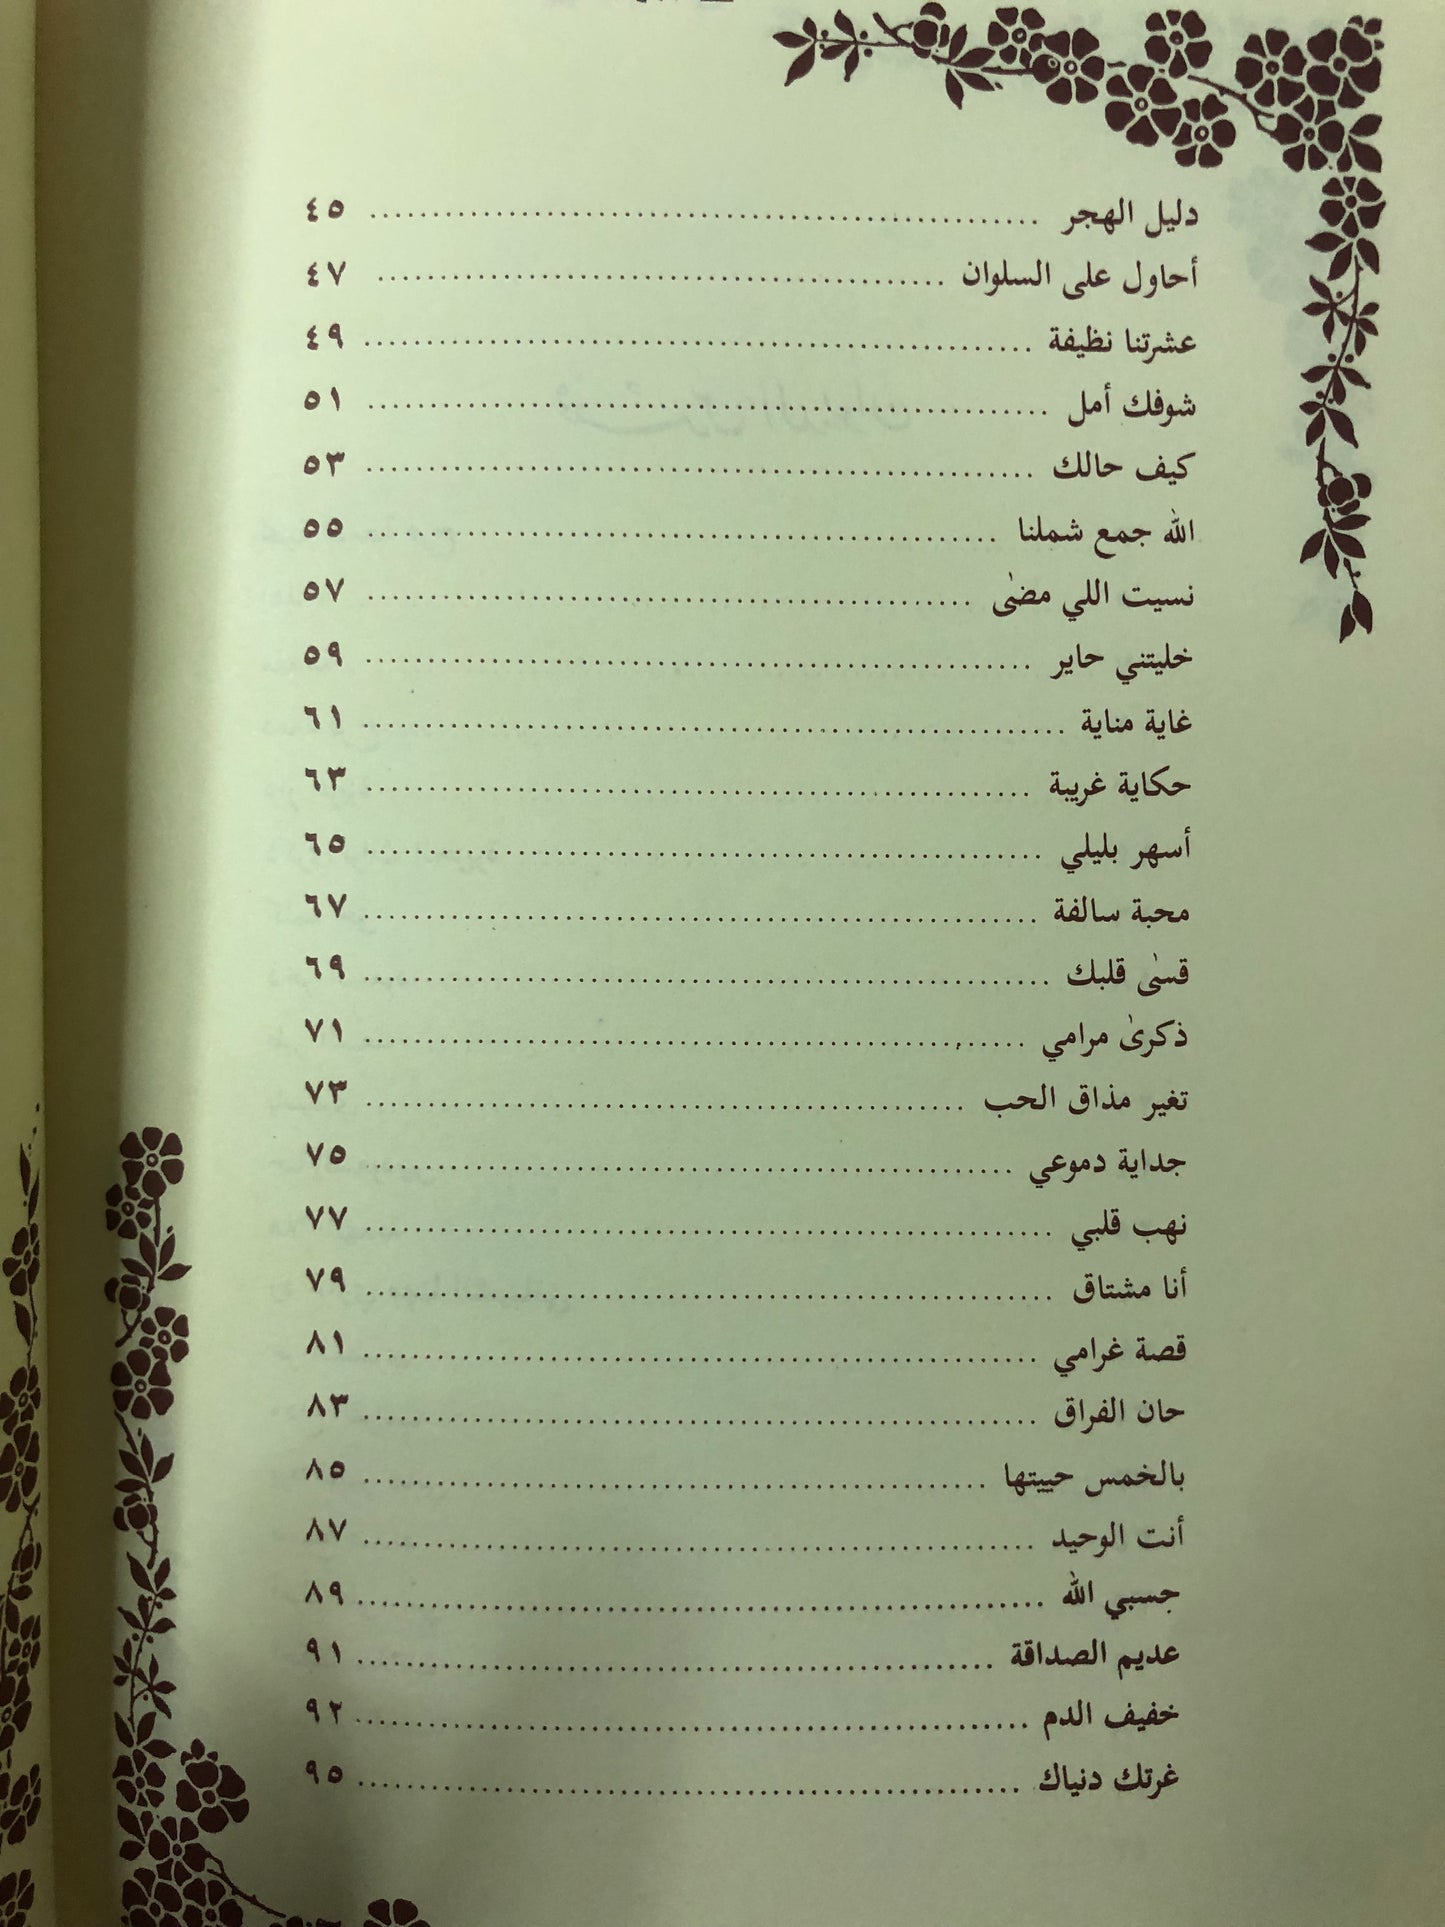 دليل الهجر ........................ ٤٥
أحاول على السلوان ........................ ٤٧
عشرتنا نظيفة ........................ ٤٩
شوفك أمل ........................ ٥١
كيف حالك ........................ ٥٣
الله جمع شملنا ........................ ٥٥
نسيت اللي مضىٰ ........................ ٥٧
خليتني حاير ........................ ٥٩
غاية مناية ........................ ٦١
حكاية غريبة ........................ ٦٣
أسهر بليلي ........................ ٦٥
محبة سالفة ........................ ٦٧
قسىٰ قلبك ........................ ٦٩
ذكرىٰ مرامي ........................ ٧١
تغير مذاق الحب ........................ ٧٣
جداية دموعي ........................ ٧٥
نهب قلبي ........................ ٧٧
أنا مشتاق ........................ ٧٩
قصة غرامي ........................ ٨١
حان الفراق ........................ ٨٣
بالخمس حييتها ........................ ٨٥
أنت الوحيد ........................ ٨٧
جسبي الله ........................ ٨٩
عديم الصداقة ........................ ٩١
خفيف الدم ........................ ٩٢
غرتك دنياك ........................ ٩٥